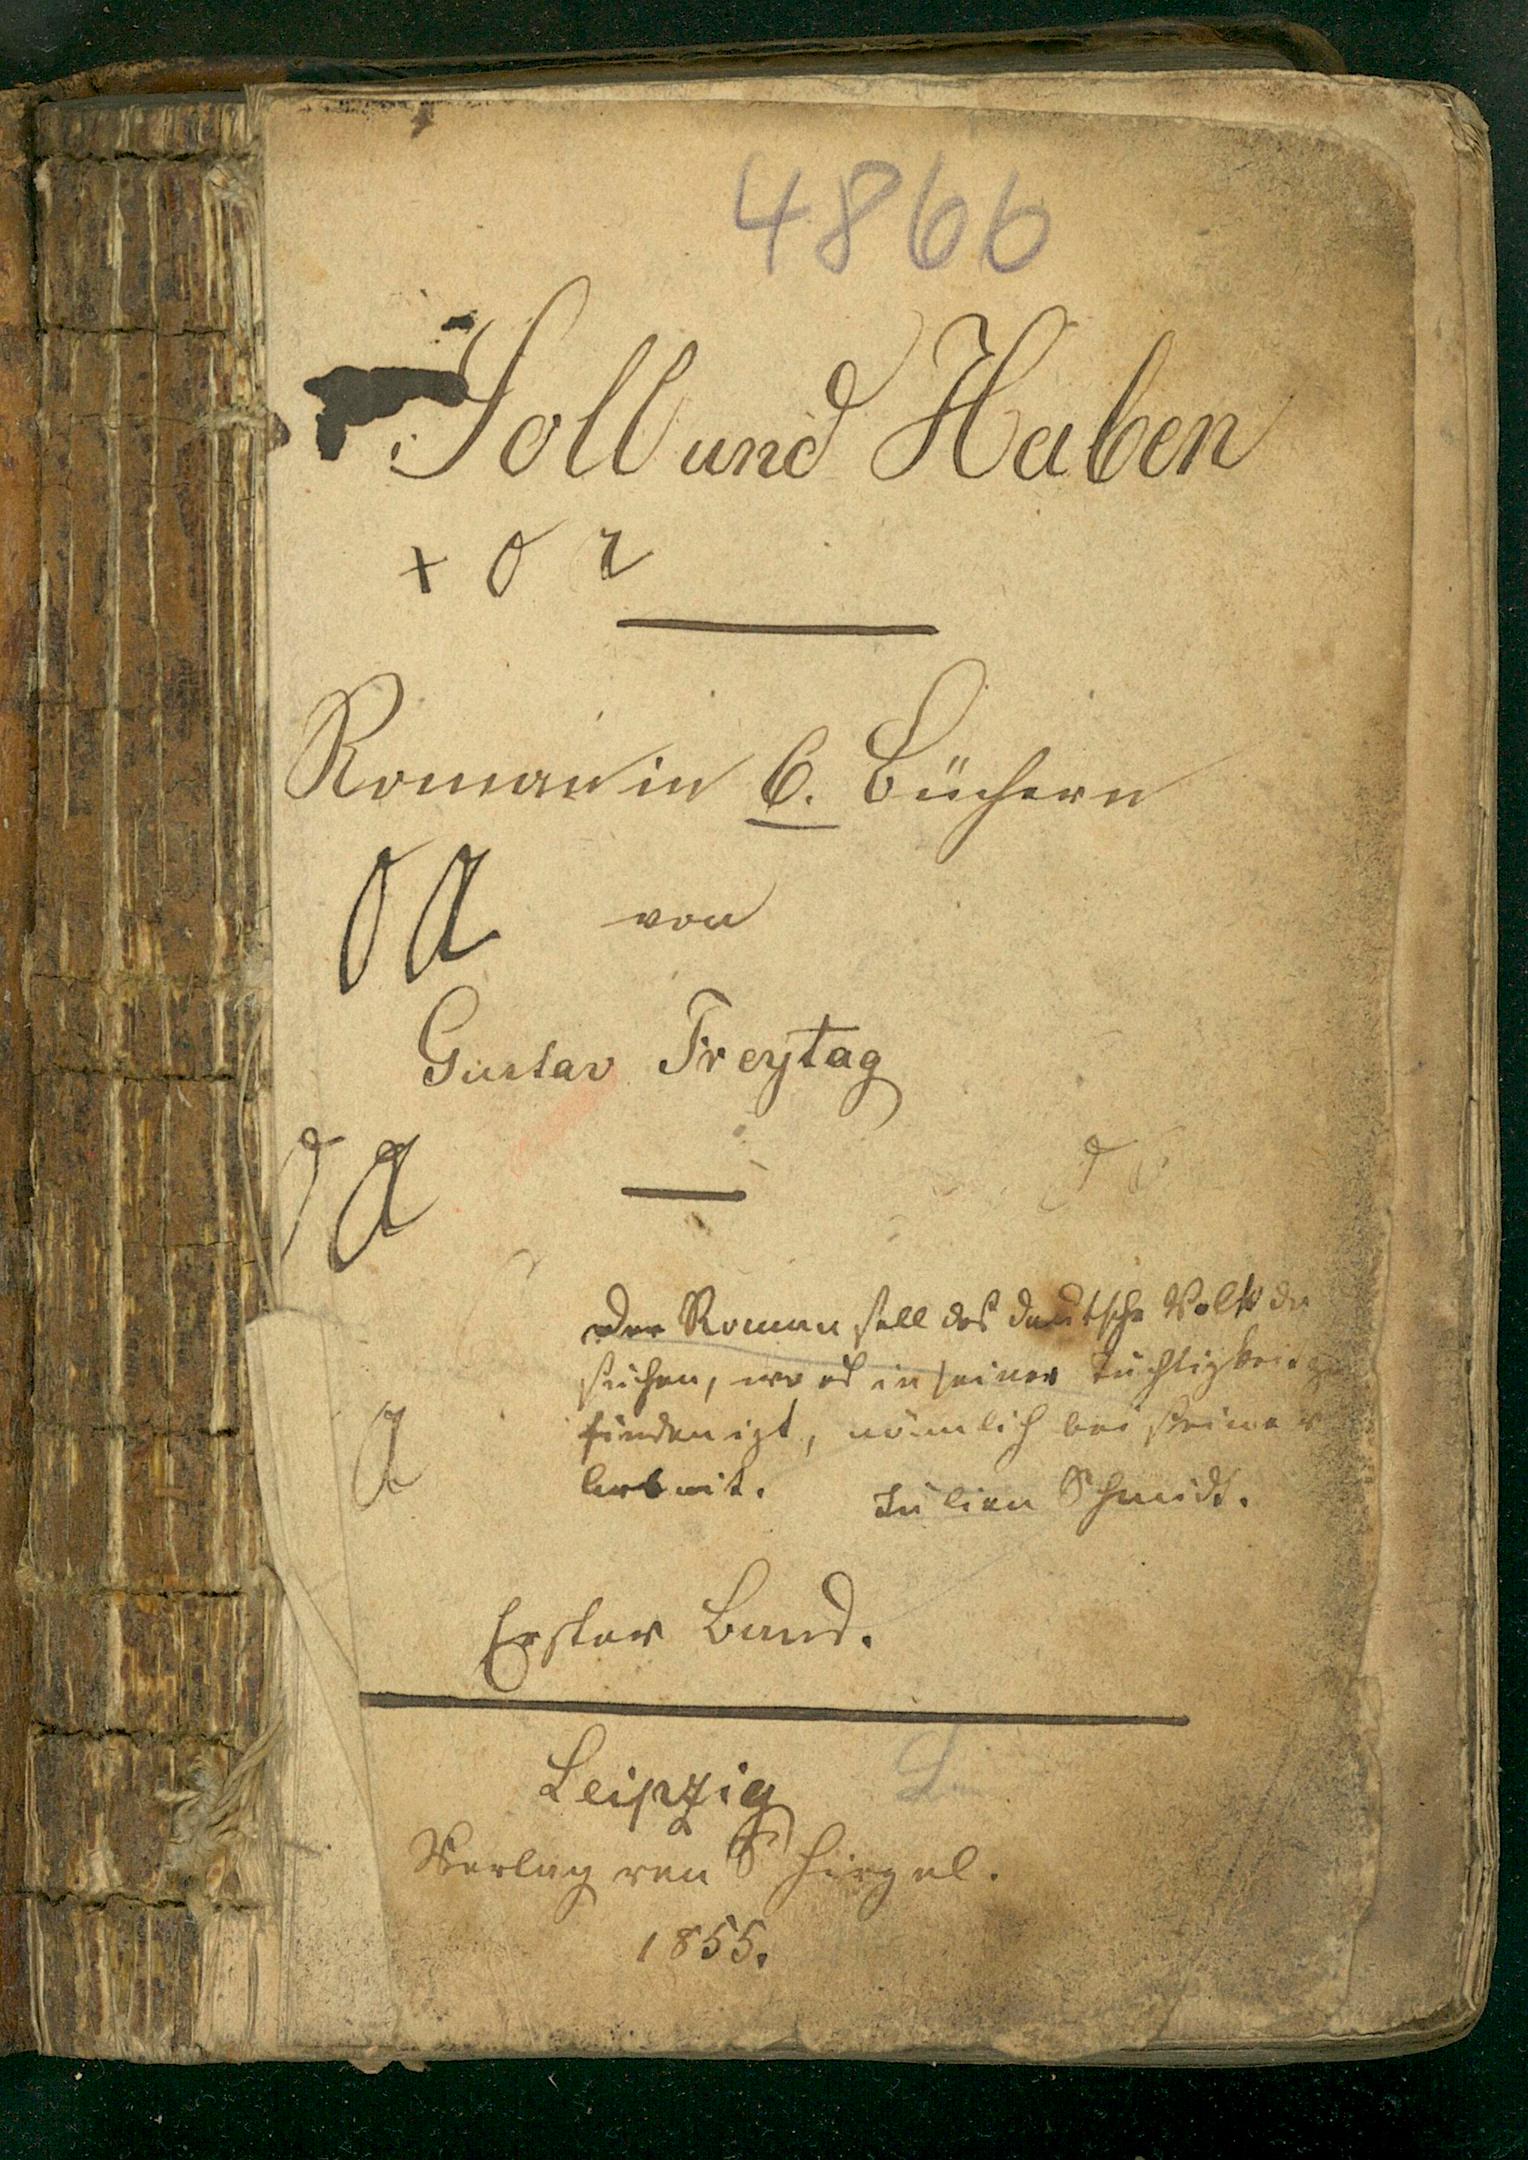 4866
Soll und Haben
+ O r
Roman in 6. Büchern
O A
von
Gustav Freytag
A
Der Roman soll das deutsche Volk da
suchen, wo es in seiner Tüchtigkeit zu
finden ist, nämlich bei seiner
Arbeit.
Julian Schmidt.
A
Erster Band.
Leipzig
Verlag von S Hirzel.
1855.